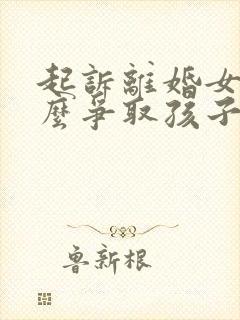 起訴離婚女
麼爭取孩子
魯新根